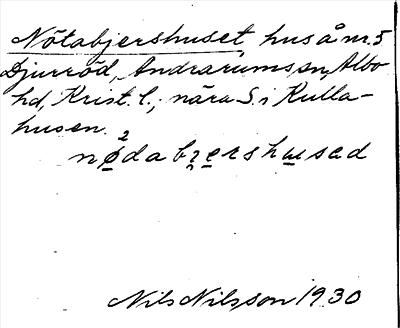 Nötabjershuset, hus å nr. 5
Djurröd, Andrarums sn, Albo
hd, Krist. l., nära S. i Kulla-
husen.
nø²dabʒershusad
Nils Nilsson 1930